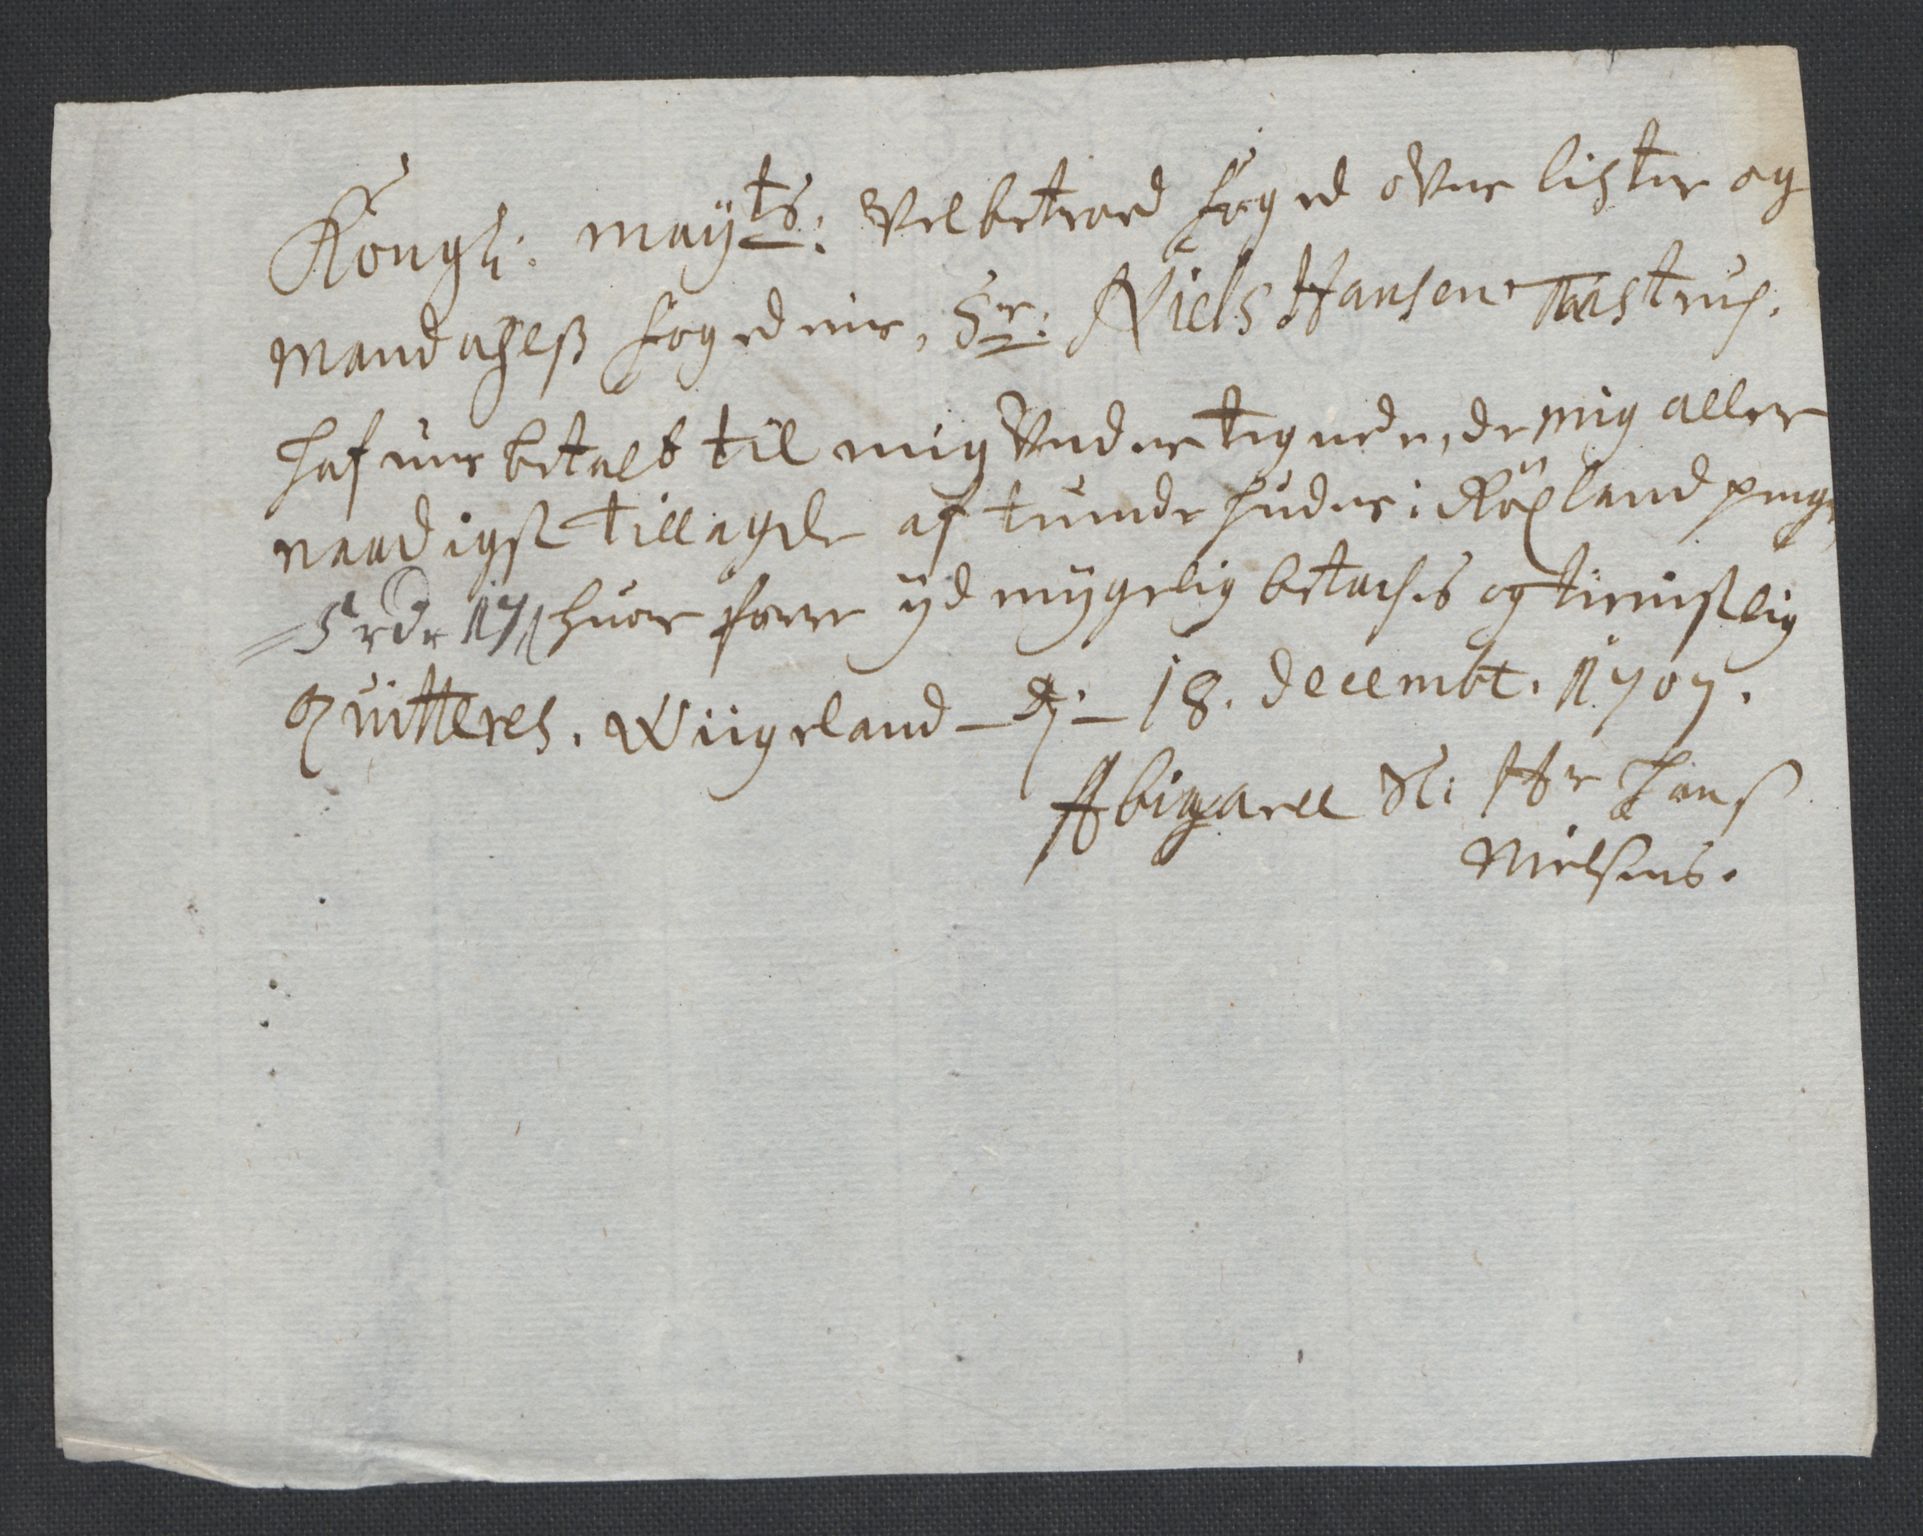 Kongl: may:ts: Velbetroed foged ofver lister og
Mandahlß fogederie, Sr: Niels Hansen Taastrup,
hafver betalt til mig Undertegnede, de mig aller
naadigst tillagde af tuende huder i Röÿland penge,
5 rdr 1707 huor fore ÿdmygelig betackes og tienistlig
Quitteres. Wiigeland - D: - 18. decembr. 1707.
Abigaell Sl: Hr Hanß
Nielsens.